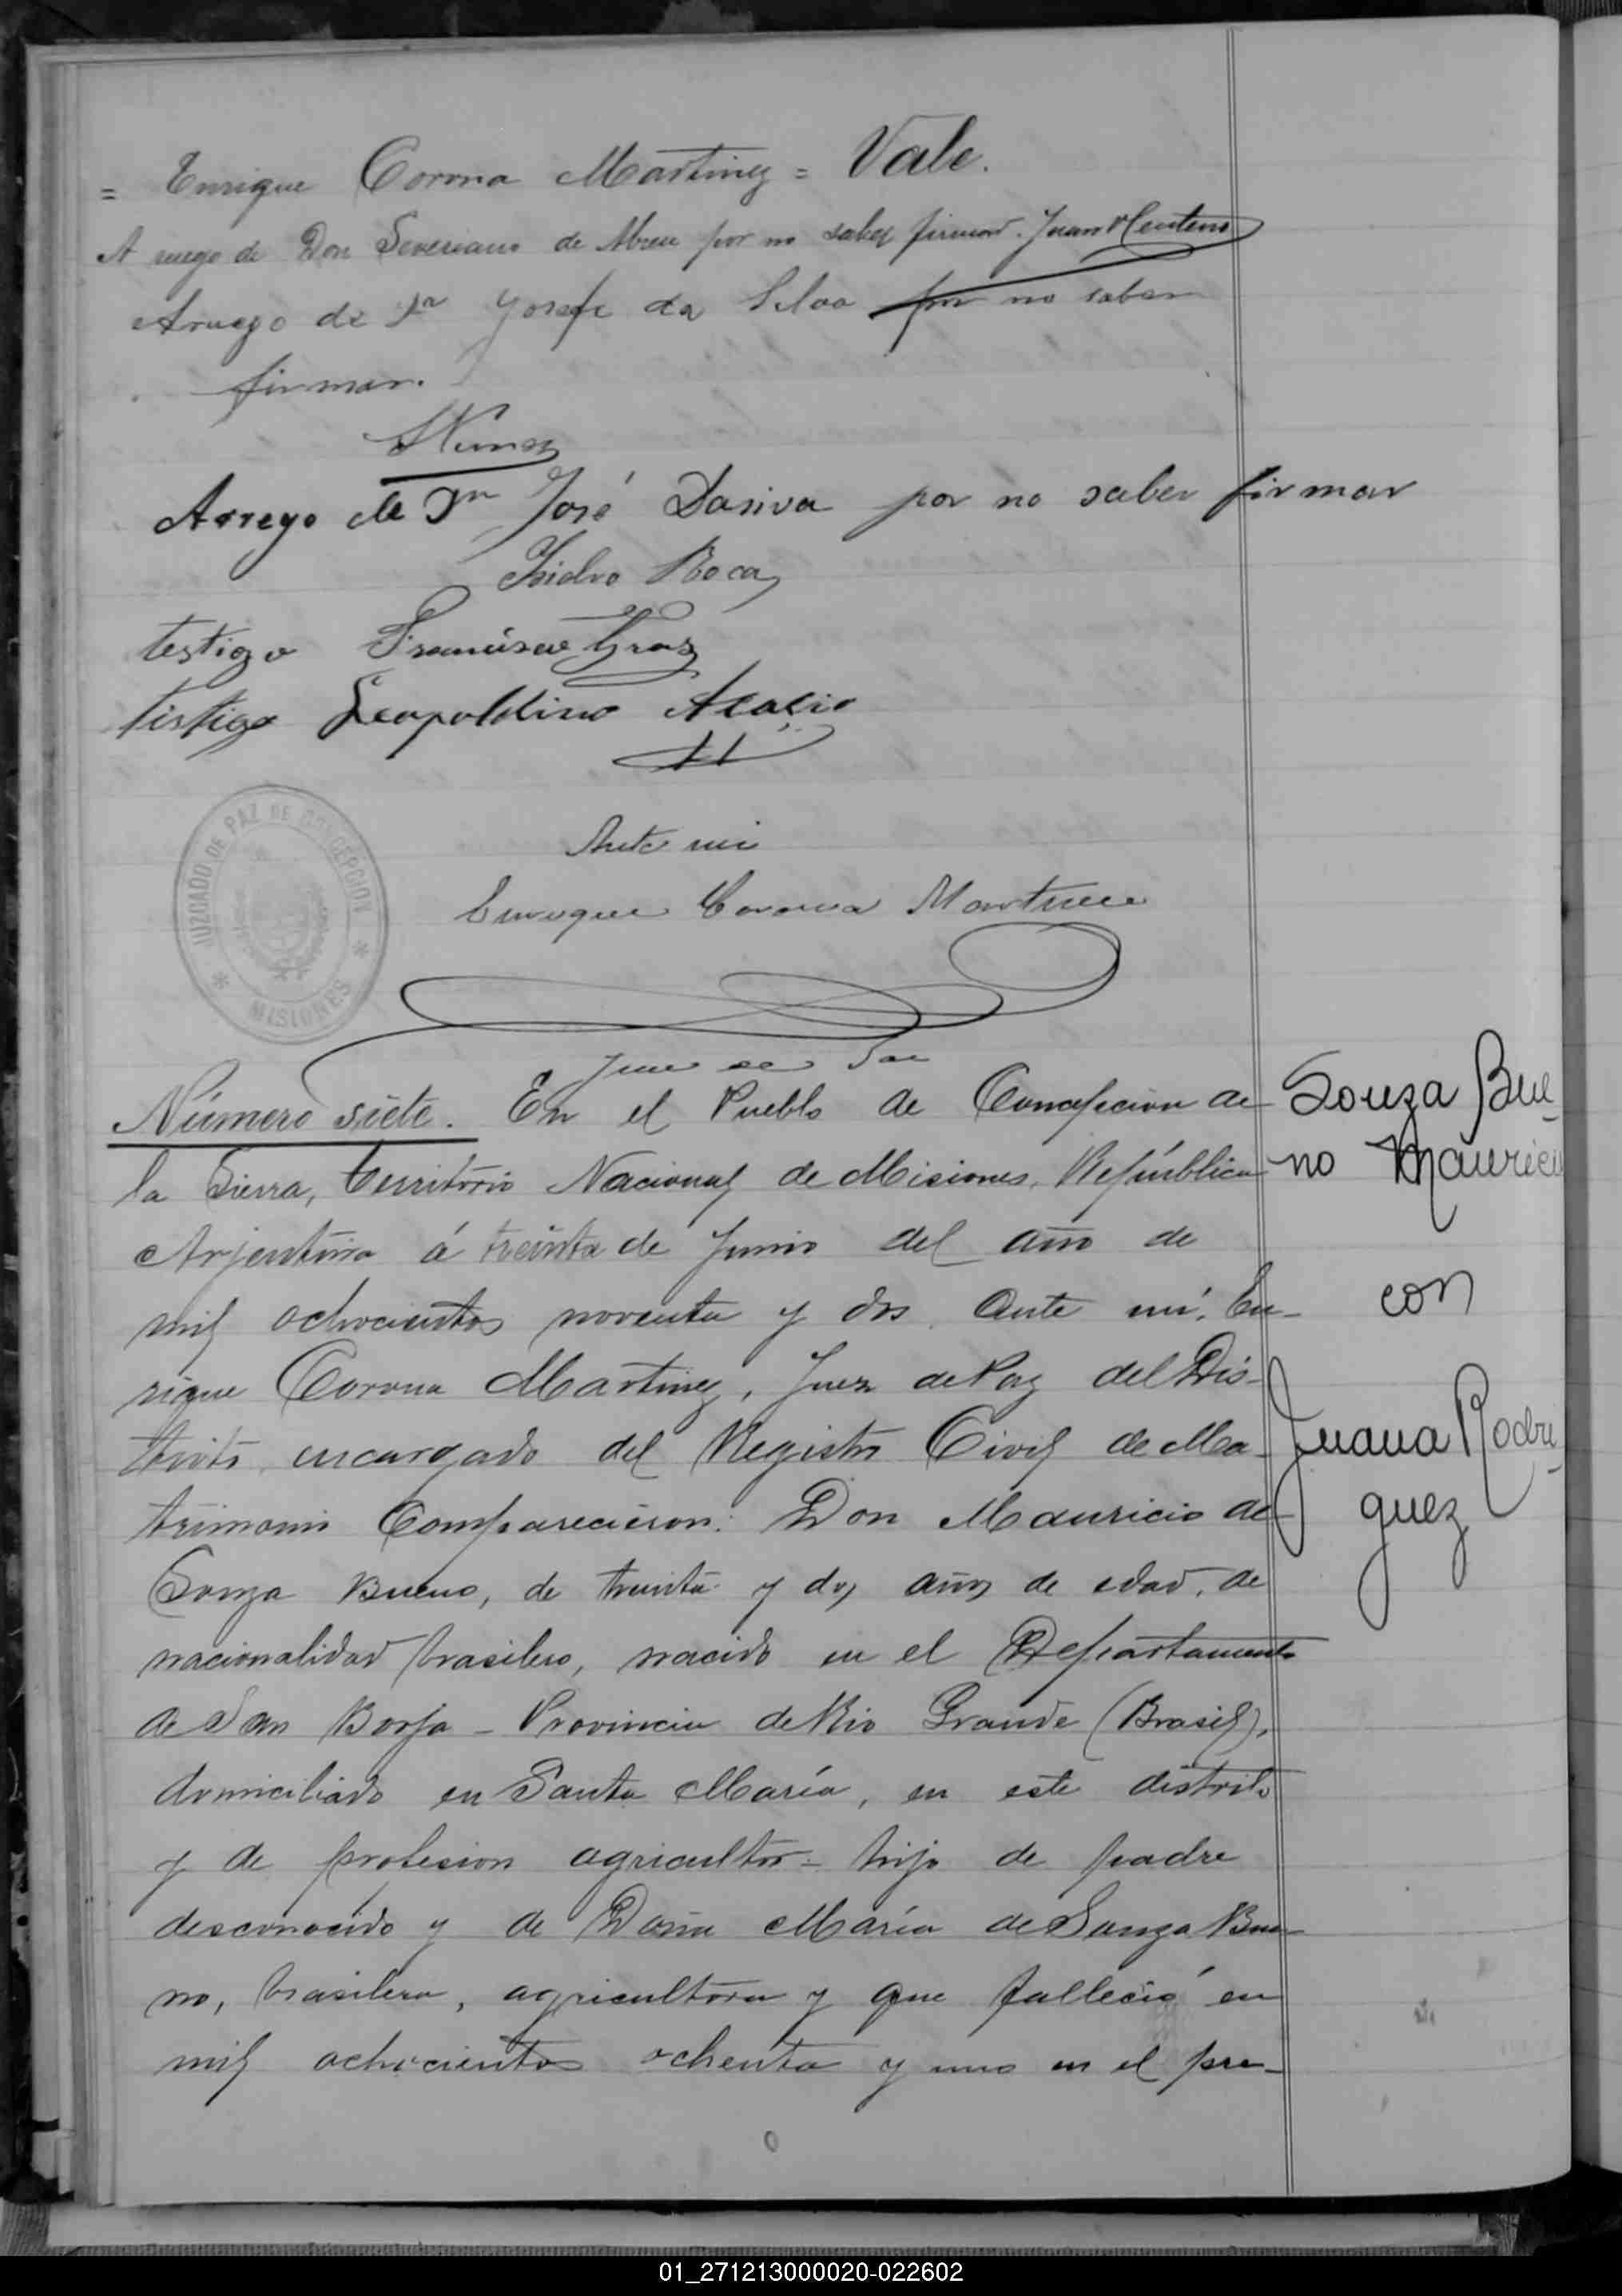 = Enrique Corona Martinez = Vale.
A ruego de Don Severiano de Abreu por no saber firmar. Juan Centeno
Aruego de Dn Josefe da Silva por no saber
firmar.
Arrego de Dn José Dasiva por no saber firmar
Isidro Roca
testigo Francisco
tistigo Leopoldino Acacio
JUZGADO DE PAZ DE CONCEPCION
MISIONES
Ante mi
Enrique Corona Martinez
Juez de Paz
Número siete. En el Pueblo de Concepcion de
la Sierra, Territorio Nacional de Misiones, República
Arjentina á treinta de Junio del año de
mil ochocientos noventa y dos, Ante mí, En-
rique Corona Martinez, Juez de Paz del Dis-
trito, encargado del Registro Civil de Ma-
trimonio Comparecieron: Don Mauricio de
Souza Bueno, de treinta y dos años de edad, de
nacionalidad brasilero, nacido en el Departamento
de San Borja - Provincia de Rio Grande (Brasil),
domiciliado en Santa María, en este distrito
y de profesion agricultor = hijo de padre
desconocido y de Doña María de Souza Bue-
no, brasilera, agricultora y que falleció en
mil ochocientos ochenta y uno en el pre-
Souza Bue-
no Mauricio
con
Juana Rodri-
guez
01_271213000020-022602